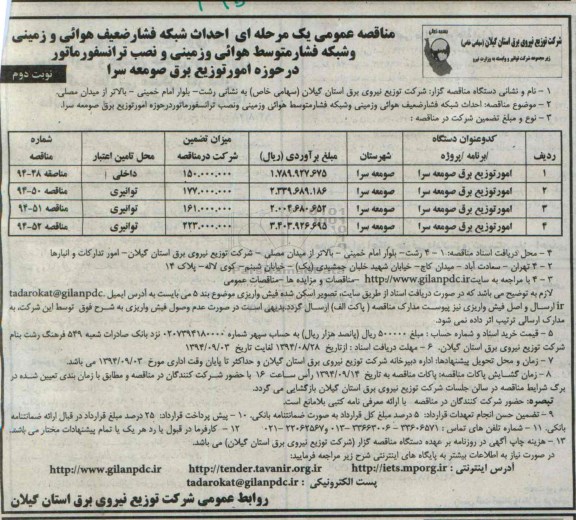 شرکت توزیع نیروی برق استان گیلان (سهامی خاص)
مناقصه عمومی یک مرحله ای احداث شبکه فشارضعیف هوائی و زمینی
وشبکه فشارمتوسط هوائی وزمینی و نصب ترانسفورماتور
درحوزه امورتوزیع برق صومعه سرا
نوبت دوم
۱ - نام و نشانی دستگاه مناقصه گزار: شرکت توزیع نیروی برق استان گیلان (سهامی خاص) به نشانی رشت- بلوار امام خمینی - بالاتر از میدان مصلی.
۲ - موضوع مناقصه: احداث شبکه فشارضعیف هوائی وزمینی وشبکه فشارمتوسط هوائی وزمینی ونصب ترانسفورماتوردرحوزه امورتوزیع برق صومعه سرا.
۳ - نوع و مبلغ تضمین شرکت در مناقصه :
ردیف | کدوعنوان دستگاه /برنامه /پروژه | شهرستان | مبلغ برآوردی (ریال) | میزان تضمین شرکت درمناقصه | محل تامین اعتبار | شماره مناقصه
۱ | امورتوزیع برق صومعه سرا | صومعه سرا | ۱.۷۸۹.۹۲۷.۶۷۵ | ۱۵۰.۰۰۰.۰۰۰ | داخلی | مناقصه ۳۸-۹۴
۲ | امورتوزیع برق صومعه سرا | صومعه سرا | ۲.۳۳۹.۶۸۹.۱۸۶ | ۱۷۷.۰۰۰.۰۰۰ | توانیری | مناقصه ۵۰-۹۴
۳ | امورتوزیع برق صومعه سرا | صومعه سرا | ۲.۰۰۴.۶۸۰.۶۵۲ | ۱۶۱.۰۰۰.۰۰۰ | توانیری | مناقصه ۵۱-۹۴
۴ | امورتوزیع برق صومعه سرا | صومعه سرا | ۳.۴۰۳.۹۲۶.۶۹۵ | ۲۲۳.۰۰۰.۰۰۰ | توانیری | مناقصه ۵۲-۹۴
۴ - محل دریافت اسناد مناقصه: ۱ - ۴ رشت- بلوار امام خمینی - بالاتر از میدان مصلی - شرکت توزیع نیروی برق استان گیلان- امور تدارکات و انبارها
۲ - ۴ تهران - سعادت آباد - میدان کاج- خیابان شهید خلبان جمشیدی (یک) - خیابان شبنم- کوی لاله- پلاک ۱۴
۳ - ۴ با مراجعه به سایت http://www.gilanpdc.ir -مناقصات و مزایده ها -مناقصات عمومی
لازم به توضیح می باشد که در صورت دریافت اسناد از طریق سایت، تصویر اسکن شده فیش واریزی موضوع بند ۵ می بایست به آدرس ایمیل tadarokat@gilanpdc.
ir ارسال و اصل فیش واریزی نیز پیوست مدارک مناقصه ( پاکت الف) ارسال گردد.بدیهی است در صورت عدم وصول فیش واریزی به شرح فوق توسط این شرکت، به
مدارک ارسالی ترتیب اثر داده نمی شود.
۵ - قیمت خرید اسناد و شماره حساب : مبلغ ۵۰۰۰۰۰ ریال (پانصد هزار ریال) به حساب سپهر شماره ۰۲۰۷۳۹۴۱۸۰۰۰۰ نزد بانک صادرات شعبه ۵۴۹ فرهنگ رشت بنام
شرکت توزیع نیروی برق استان گیلان. ۶ - مهلت دریافت اسناد : ازتاریخ ۱۳۹۴/۰۸/۲۸ لغایت تاریخ ۱۳۹۴/۰۹/۰۳
۷ - زمان و محل تحویل پیشنهادها: اداره دبیرخانه شرکت توزیع نیروی برق استان گیلان و حداکثر تا پایان وقت اداری مورخ ۱۳۹۴/۰۹/۰۳ می باشد.
۸ - زمان گشایش پاکات مناقصه: پاکات مناقصه به تاریخ ۱۳۹۴/۰۹/۱۴ رأس ساعت ۱۶ با حضور شـرکت کنندگان در مناقصه و مطابق با زمان بندی تعیین شـده در
برگ شرایط مناقصه در سالن جلسات شرکت توزیع نیروی برق استان گیلان بازگشایی می گردد.
تبصره: حضور شرکت کنندگان در مناقصه با ارائه معرفی نامه کتبی بلامانع است.
۹ - تضمین حسن انجام تعهدات قرارداد: ۵ درصد مبلغ کل قرارداد به صورت ضمانتنامه بانکی. ۱۰ - پیش پرداخت قرارداد: ۲۵ درصد مبلغ قرارداد در قبال ارائه ضمانتنامه
بانکی. ۱۱ - شماره تلفن های تماس : ۳۳۶۰۶۵۷۱ - ۳۳۶۶۳۰۰۶-۰۱۳ و ۲۲۰۶۲۵۶۷-۰۲۱ ۱۲ - کارفرما در قبول یا رد هر یک یا تمام پیشنهادات مختار می باشد.
۱۳ - هزینه چاپ آگهی در روزنامه بر عهده دستگاه مناقصه گزار (شرکت توزیع نیروی برق استان گیلان) می باشد.
در صورت نیاز به اطلاعات بیشتر به پایگاه های اینترنتی شرح زیر مراجعه فرمایید:
آدرس اینترنتی : http://iets.mporg.ir http://tender.tavanir.org.ir http://www.gilanpdc.ir
پست الکترونیکی : tadarokat@gilanpdc.ir
روابط عمومی شرکت توزیع نیروی برق استان گیلان